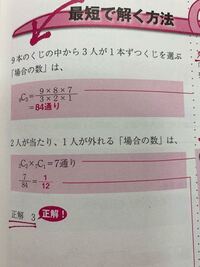 最短で解く方法
9本のくじの中から3人が1本ずつくじを選ぶ
「場合の数」は、
₉C₃=9×8×7/3×2×1
=84通り
2人が当たり、1人が外れる「場合の数」は、
₂C₂×₇C₁=7通り
7/84=1/12
正解 3 正解!